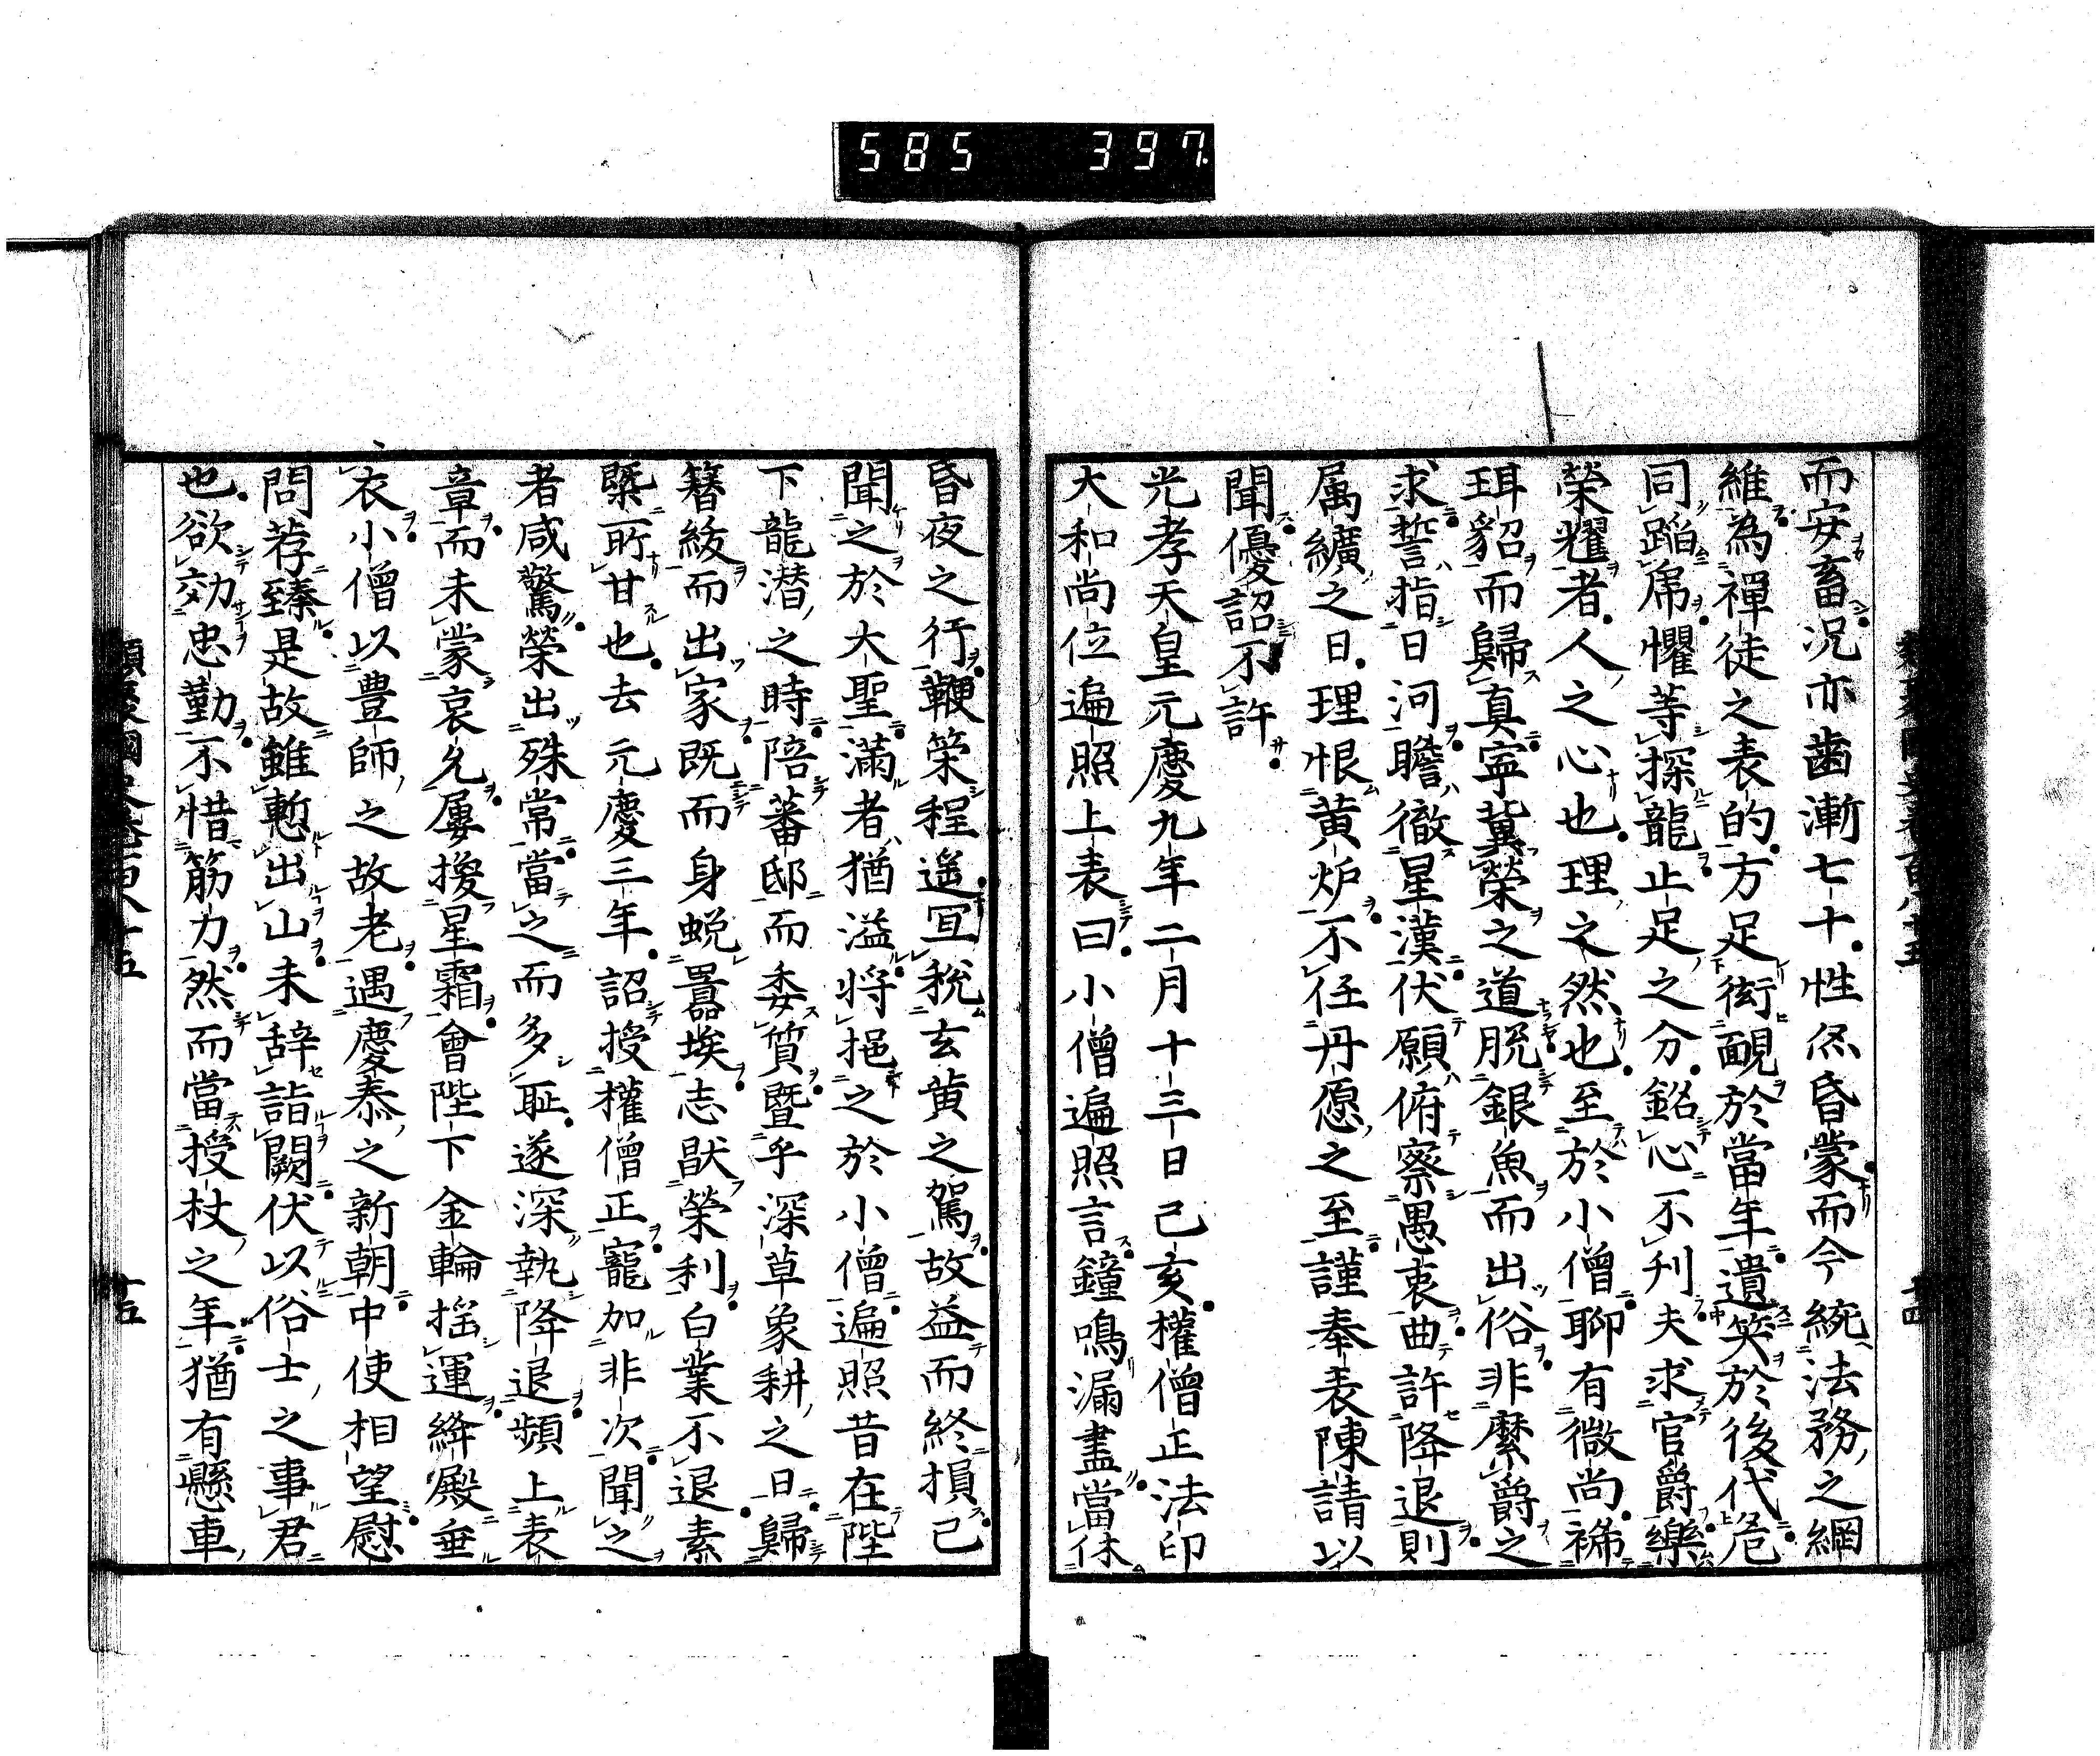 585 397
而安畜況亦齒漸七十性尓昏蒙而今統法務之綱
維為禪徒之表的方足衒靦於當年遺笑於後代危
同蹈虎懼等探龍止足之分銘心不刊夫求官爵樂
榮耀者人之心也理之然也至於小僧聊有微尚褫
珥貂而歸真寧冀榮之道脫銀魚而出俗非縻爵之
求誓指日河瞻徹星漢伏願俯察愚衷曲許降退則
属纊之日理恨黃炉不任丹愿之至謹奉表陳請以
聞優詔不許
光孝天皇元慶九年二月十三日己亥權僧正法印
大和尚位遍照上表曰小僧遍照言鐘鳴漏盡當休
昏夜之行鞭策程遥冝税玄黄之駕故益而終損己
聞之於大聖滿者猶溢將挹之於小僧遍照昔在陛
下龍潜之時陪蕃邸而委質曁乎深草象耕之日歸
簪紱而出家既而身蛻囂埃志猒榮利白業不退素
槩所甘也去元慶三年詔授權僧正寵加非次聞之
者咸驚榮出殊常當之而多耻遂深執降退頻上表
章而未蒙哀允屢換星霜會陛下金輪揺運絳殿垂
衣小僧以豊師之故老遇慶泰之新朝中使相望慰
問荐臻是故雖慙出山未辞詣闕伏以俗士之事君
也欲効忠勤不惜筋力然而當授杖之年猶有懸車
十五